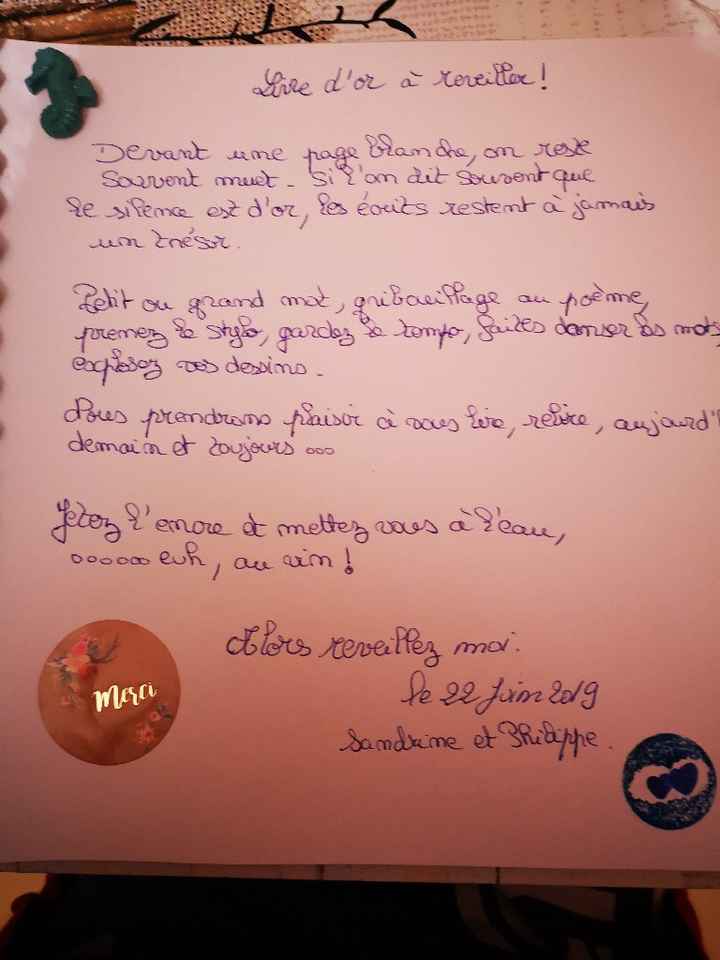 Livre d'or à reveiller !
Devant une page blanche, on reste
souvent muet. Si l'on dit souvent que
le silence est d'or, les écrits restent à jamais
un trésor.
Petit ou grand mot, gribouillage ou poème,
prenez le stylo, gardez le tempo, faites danser les mots
explosez vos dessins.
Nous prendrons plaisir à vous lire, relire, aujourd'
demain et toujours ...
Jetez l'encre et mettez vous à l'eau,
...... euh, au vin !
Alors reveillez moi.
le 22 Juin 2019
Merci
Sandrine et Philippe.